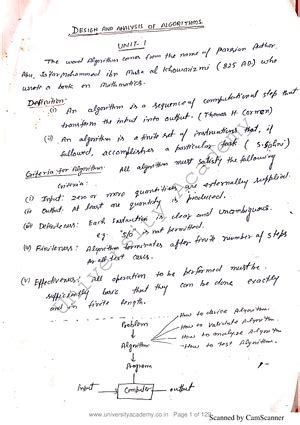 DESIGN AND ANALYSIS OF ALGORITHMS
UNIT-1
The word Algorithm comes from the name of Persian Author,
Abu, Ja'far Mohammad ibn Musa al Khowarizmi (825 AD) who
wrote a book on Mathematics.
Definition:
(i) An algorithm is a sequence of computational steps that
transform the input into output. (Thomas H Cormen)
(ii) An algorithm is a finite set of instructions that, if
followed, accomplishes a particular task (S. Sahni)
Criteria for Algorithm: All algorithm must satisfy the following
criteria:
(i) Input: Zero or more quantities are externally supplied.
(ii) Output: At least one quantity is produced.
(iii) Definiteness: Each instruction is clear and unambiguous.
eg: 5/0 is not permitted.
(iv) Finiteness: Algorithm terminates after finite number of steps
for all test cases.
(v) Effectiveness: All operation to be performed must be
sufficiently basic that they can be done exactly
and in finite length.
Problem
How to device Algorithm.
How to validate Algorithm.
Algorithm
How to analyze Algorithm
How to test Algorithm.
Program
Input
Computer
output
www.universityacademy.co.in Page 1 of 129
Scanned by CamScanner
University Academy